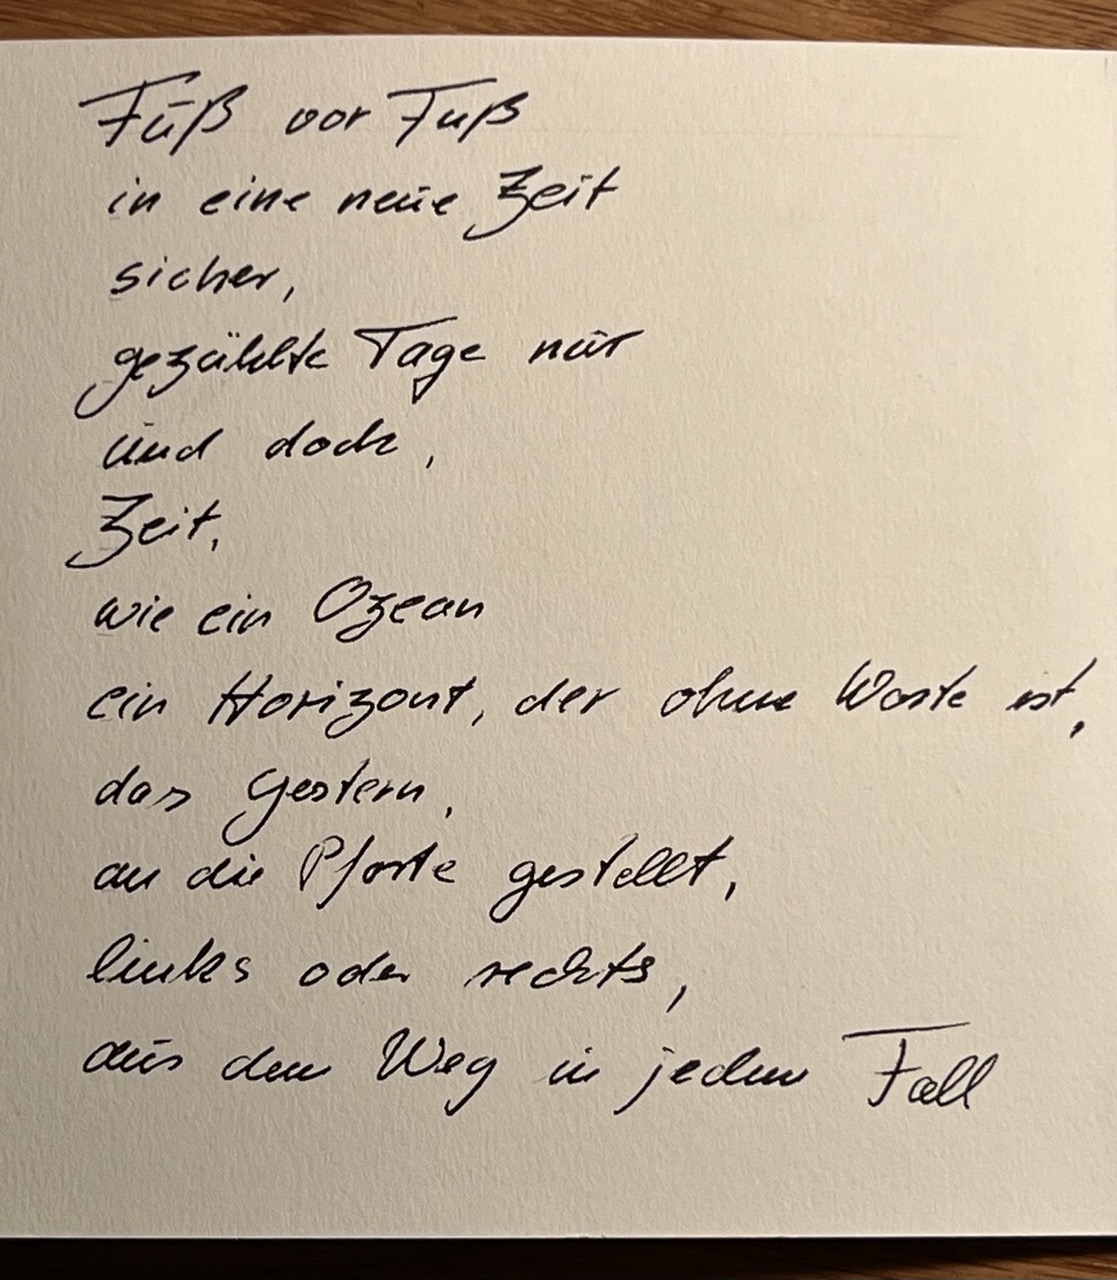 Fuß vor Fuß
in eine neue Zeit
sicher,
gezählte Tage nur
und doch,
Zeit,
wie ein Ozean
ein Horizont, der ohne Worte ist,
das Gestern,
an die Pforte gestellt,
links oder rechts,
aus dem Weg in jedem Fall